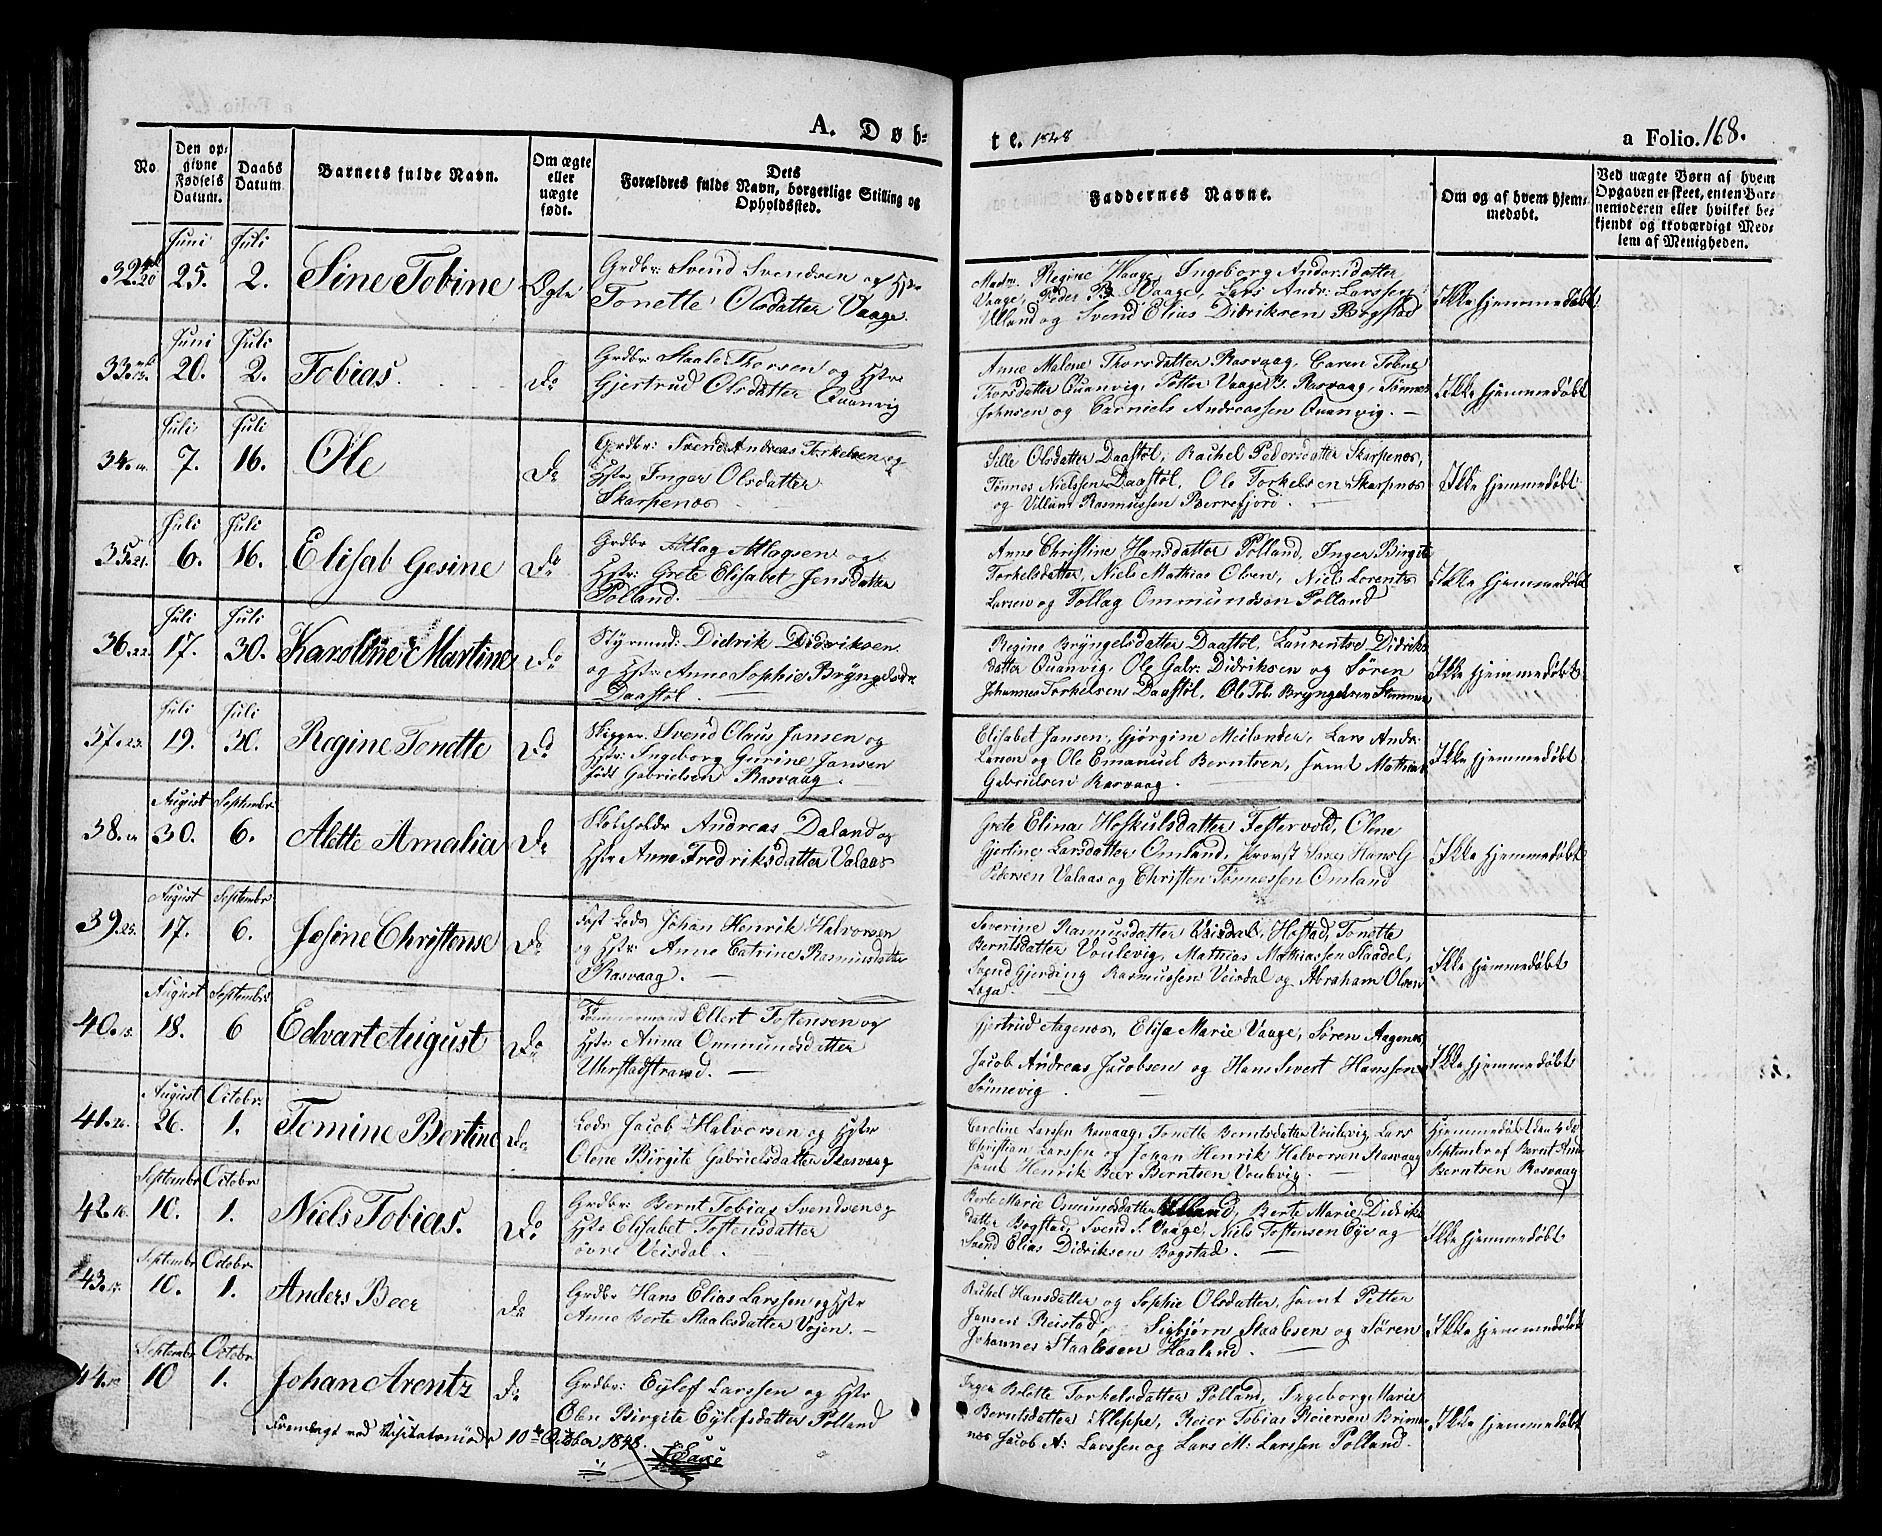 A. Døb-
te. 1848
a Folio. 168.
No
Den op-
givne
Fødsels
Datum.
Daabs
Datum
Barnets fulde Navn.
Om ægte
eller
uægte
født.
Dets
Forældres fulde Navn, borgerlige Stilling og
Opholdssted.
Faddernes Navne.
Om og af hvem hjem-
medøbt.
Ved uægte Børn af hvem
Opgaven er skeet, enten Bar-
nemoderen eller hvilket be-
kjendt og troværdigt Med-
lem af Menigheden.
32. Juni 25. Juli 2. Sine Tobine Ægte
Grdbr: Svend Svendsen og Hstr
Tonette Olsdatter Vaage.
Madm. Regine Vaage, Ingeborg Andersdatter
Vaage, Peder B. Vaage, Lars Andr: Larssen
Ulland og Svend Elias Didriksen Bogstad
Ikke hjemmedøbt
33. Juni 20. Juli 2. Tobias. Do
Grdbr: Staale Thorsen og Hstr
Gjertrud Olsdatter Quanvig
Anne Malene Thorsdatter Rasvaag, Caren Tobine
Thorsdatter Quanvig, Petter Vaage B. Rasvaag, Tønnes
Johnsen og Carniels Andreassen Quanvig. —
Ikke hjemmedøbt
34. Juli 7. Juli 16. Ole Do
Grdbr: Svend Andreas Torkelsen og
Hstr Inger Olsdatter
Skarpenes
Sille Olsdatter Daastøl, Rachel Pedersdatter Skarpenes,
Tønnes Nielssen Daastøl, Ole Torkelsen Skarpenes
og Villum Rasmussen Berrefjord.
Ikke hjemmedøbt
35. 21. Juli 6. Juli 16. Elisab Gesine Do
Grdbr Atlag Atlagsen og
Hstr: Grete Elisabet Jensdatter
Polland.
Anne Christine Hansdatter Polland, Inger Birgite
Torkelsdatter, Niels Mathias Olsen, Niels Lorents
Larsen og Tollag Ommundsen Polland
Ikke hjemmedøbt
36. 22. Juli 17. Juli 30. Karoline Martine Do
Styrmnd: Didrik Didriksen
og Hstr: Anne Sophie Bryngelsdr
Daastøl. —
Regine Bryngelsdatter Daastøl, Laurentse Didriks
datter Quanvig, Ole Gabr: Didriksen og Søren
Johannes Torkelsen Daastøl, Ole Tob: Bryngelsen Stemmen
Ikke hjemmedøbt
37. 23. Juli 19. Juli 30. Regine Tonette Do
Skipper: Svend Olaus Jansen og
Hstr: Ingeborg Gurine Jansen
født Gabrielsen Rasvaag. —
Elisabet Jansen, Gjørgine Meilender, Lars Andr:
og Ole Emanuel Berntsen, samt Mathias
Gabrielsen Rasvaag. —
Ikke hjemmedøbt
38. August 30. Septembr 6. Alette Amalia Do
Skoleholdr Andreas Daland og
Hstr Anne Fredriksdatter Valaas
Grete Elina Hoskulsdatter Festervold, Olene
Gjertine Larsdatter Omland, Provst Saxe, Hans G
Pedersen Valaas og Christen Tønnessen Omland
Ikke hjemmedøbt
39. 25. August 17. Septembr 6. Josine Christense Do
Fast Lods Johan Henrik Halvorsen
og Hstr: Anne Catrine Rasmusdatter
Rasvaag. —
Severine Rasmusdatter Veisdal, Hostad, Tonette
Berntsdatter Voulevig, Mathias Mathiassen Staadel,
Svend Gjerding Rasmussen Veisdal og Abraham Olsen
Laga.
Ikke hjemmedøbt
40. 15. August 18. Septembr 6 Edvart August Do
Tømmermand Ellert Tostensen og
Hstr: Anna Ommundsdatter
Uhrstadstrand. —
Gjertrud Aagenes, Elisa Marie Vaage, Søren Aagenes
Jacob Andreas Jacobsen og Hans Sivert Hanssen
Sønnevig. —
Ikke hjemmedøbt
41. 26. August 26. Octobr 1. Tomine Bertine Do
Lods Jacob Halvorsen og Hstr
Olene Birgite Gabrielsdatter Rasvaag
Caroline Larssen Rasvaag, Tonette Berntsdatter Voulevig, Lars
Christian Larssen og Johan Henrik Halvorsen Rasvaag
samt Henrik Beer Berntsen Voulevig. —
Hjemmedøbt den 4de
September af Bernt Andr
Berntsen Rasvaag
42. 16. Septembr 10. Octobr 1. Niels Tobias. Do
Grdbr: Bernt Tobias Svendsen og
Hstr Elisabet Tostensdatter
øvre Veisdal. —
Berte Marie Ommundsdatter Ulland, Berte Marie Didriks
datter Bogstad, Svend S. Vaage, Niels Tostensen Eye og
Svend Elias Didriksen Bogstad. —
Ikke hjemmedøbt
43. 17. Septembr 10. Octobr 1. Anders Beer Do
Grdbr Hans Elias Larssen og Hstr
Anne Berte Staalesdatter Vojen. —
Rachel Hansdatter og Sophie Olsdatter, samt Petter
Jansen Reistad, Sigbjørn Staalesen og Søren
Johannes Staalesen Haaland.
Ikke hjemmedøbt
44. Septembr 10 Octobr 1. Johan Arentz Do
Grdbr: Eylef Larssen og Hstr
Olene Birgite Eylefsdatter Polland
Inger Bolette Torkelsdatter Polland, Ingeborg Marie
Berntsdatter Kleppe, Reier Tobias Reiersen Brimse
næs Jacob A: Larssen og Lars M: Larssen Polland.
Ikke hjemmedøbt
Fremlagt ved Visitatsmøde 10de October 1848.